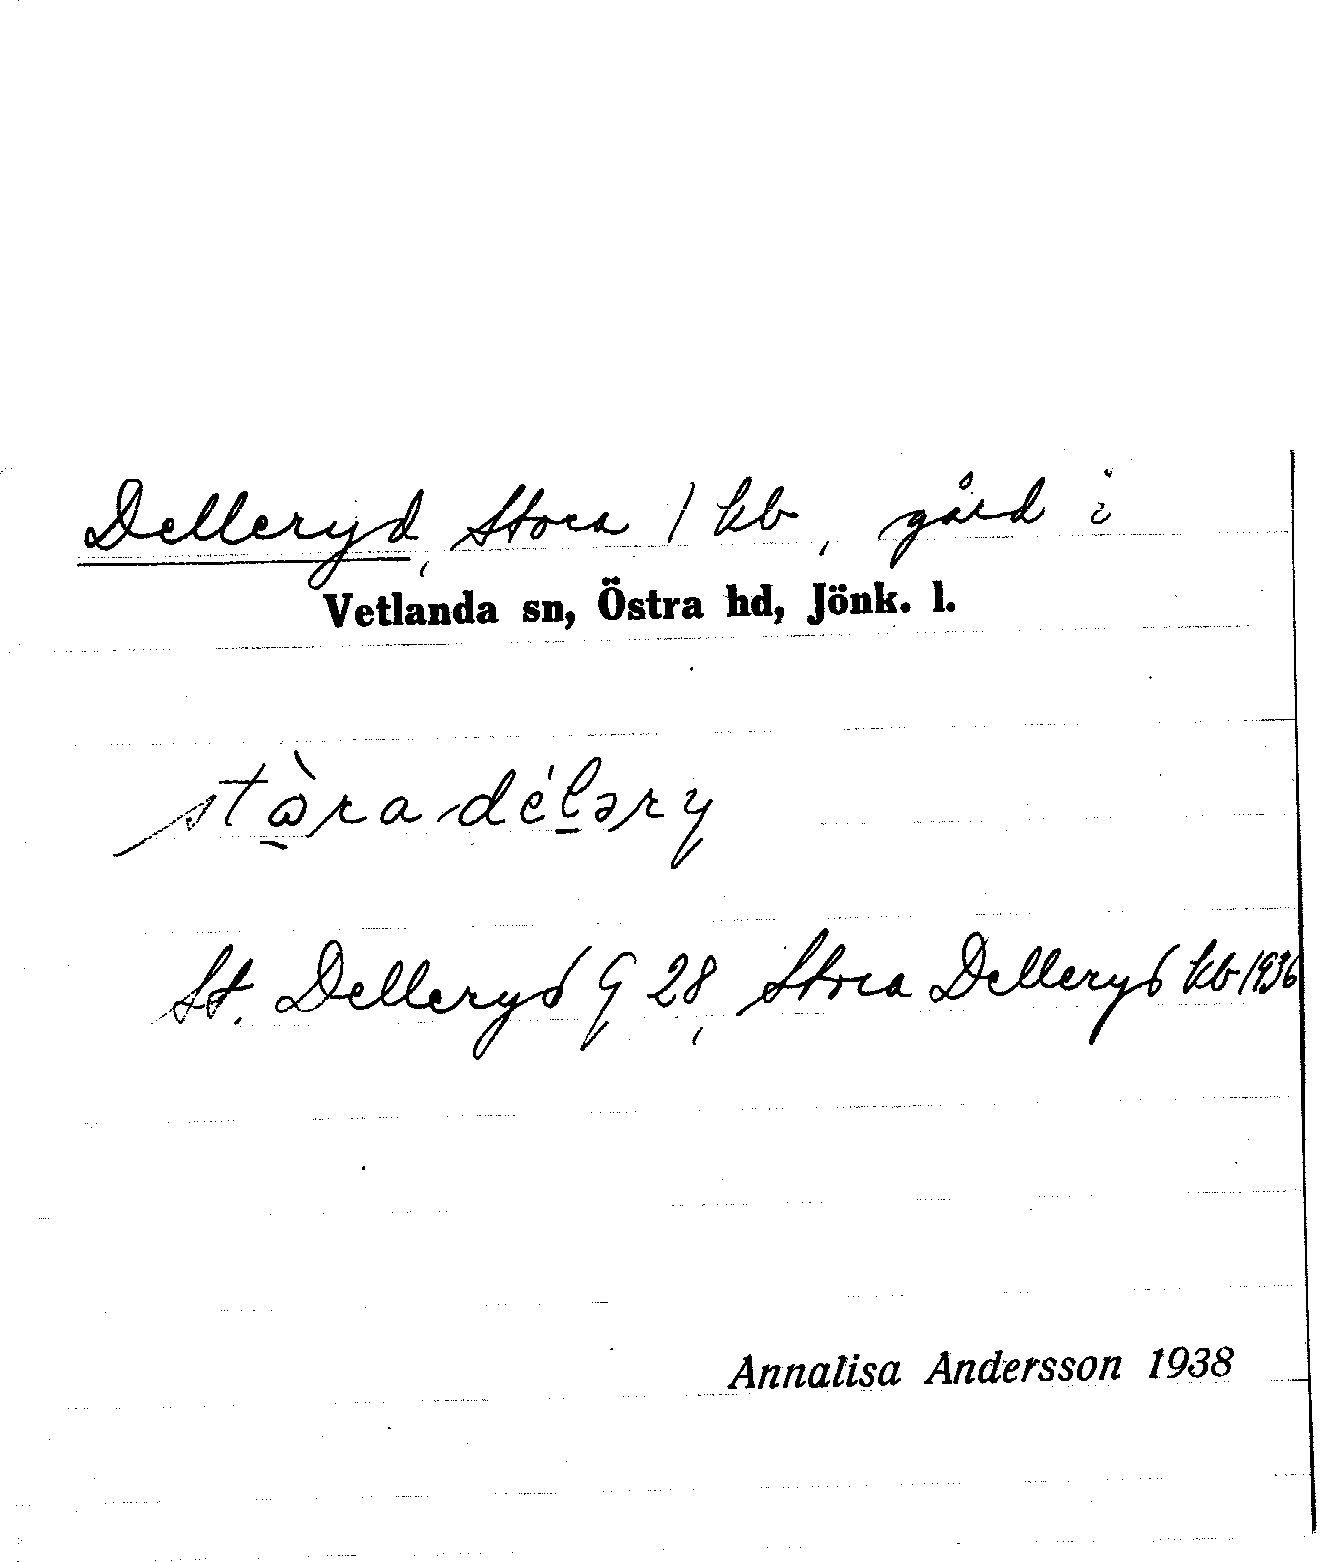 Delleryd, Stora 1 kb, gård i
Vetlanda sn, Östra hd, Jönk. l.
stὼra déləry
St. Delleryd G 28, Stora Delleryd kb 1936
Annalisa Andersson 1938